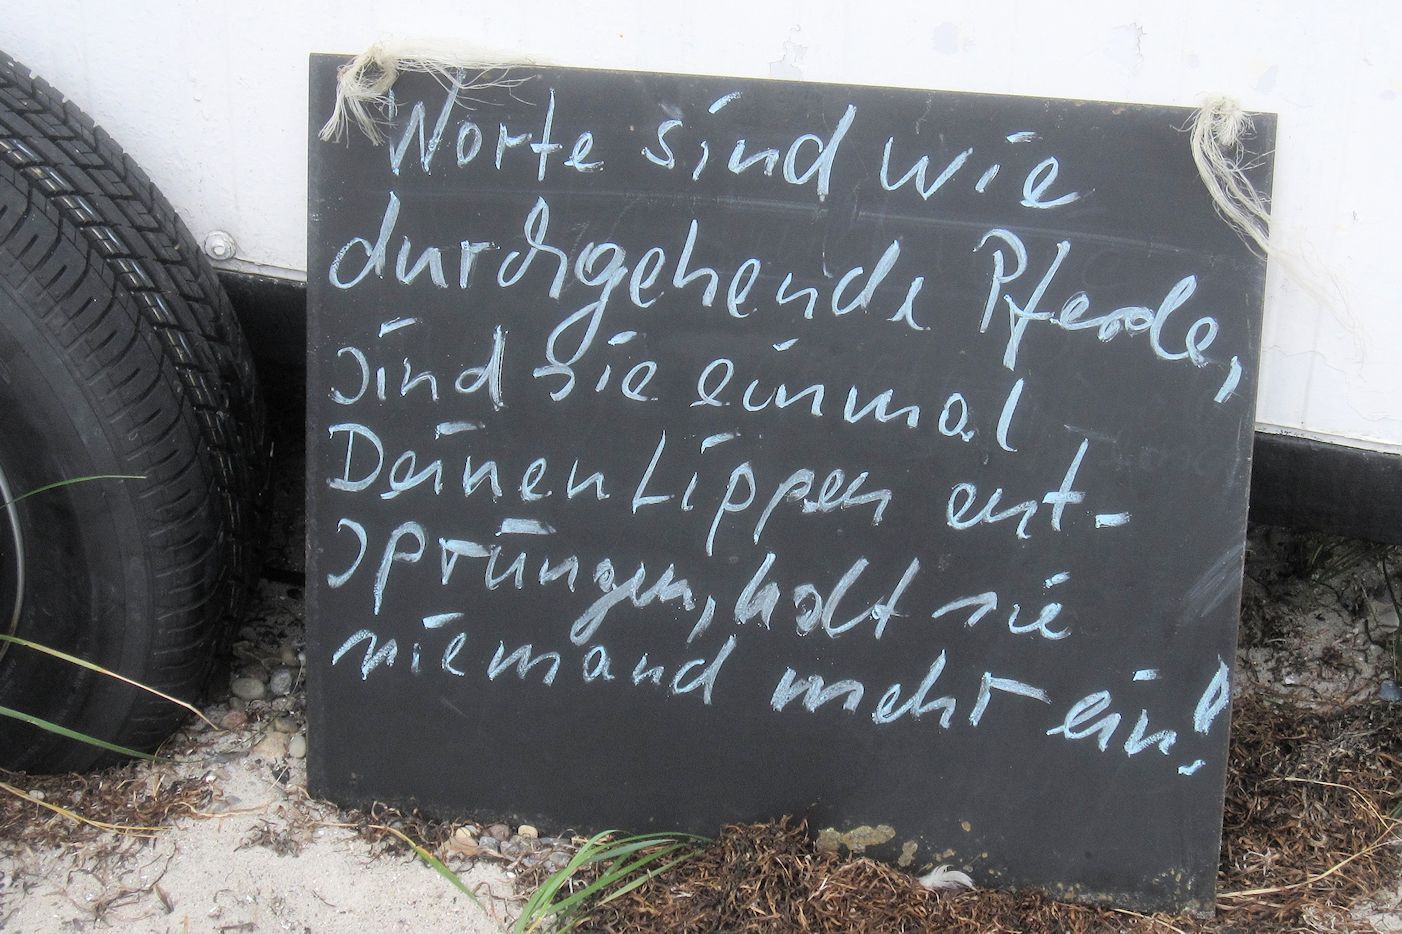 Worte sind wie
durchgehende Pferde,
sind sie einmal
Deinen Lippen ent-
sprungen, holt sie
niemand mehr ein!